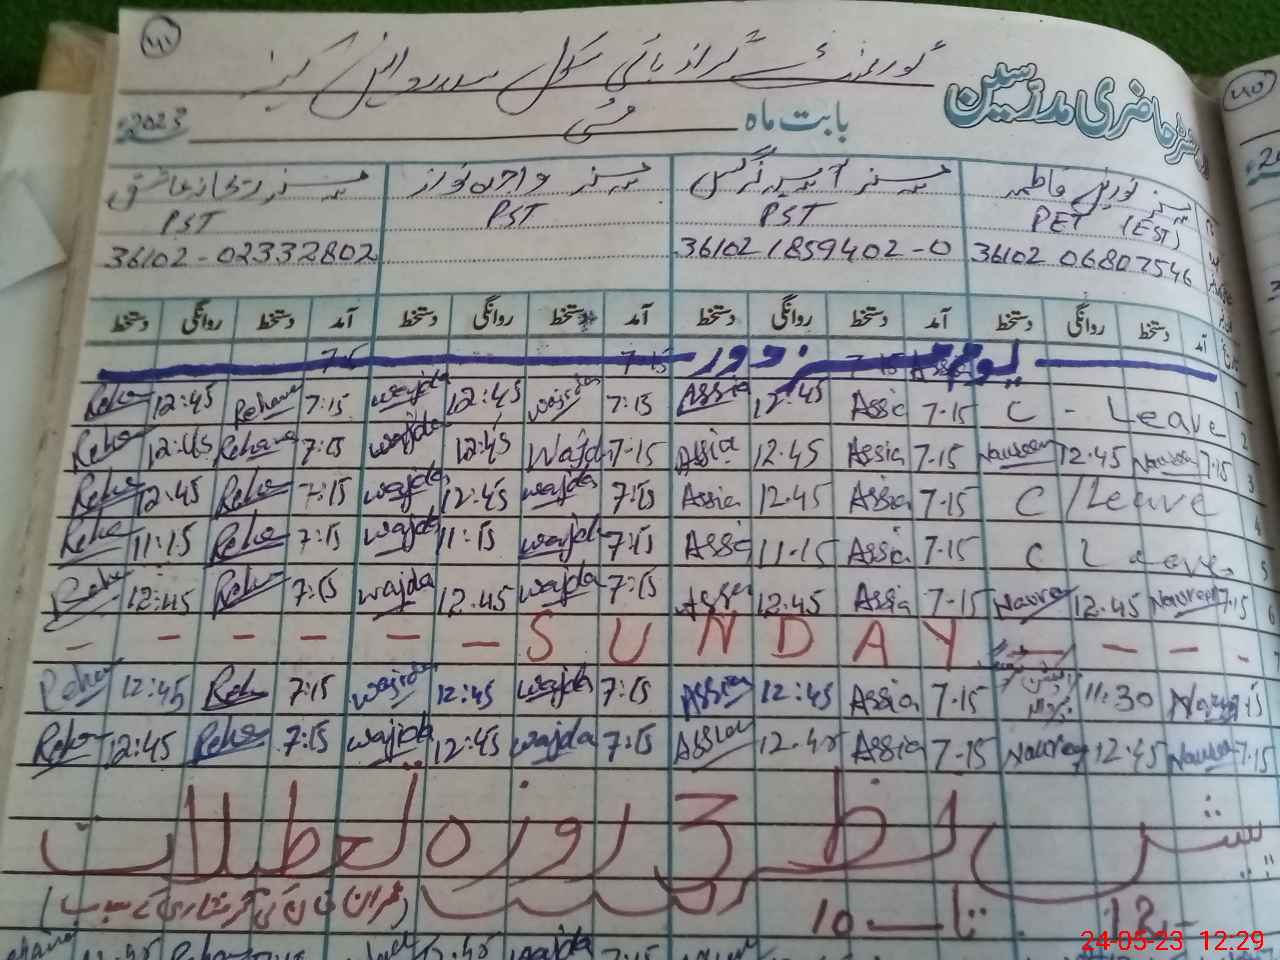 رجسٹر حاضری مدرسین
گورنمنٹ گرلز ہائی سکول
بابت ماہ مئی 2023ء
مسز نورین فاطمہ مسز آسیہ نرگس مسز واجدہ نواز مسز ریحانہ عاشق
PET (EST) PST PST PST
36102 06807546 36102 1859402-0 36102-02332802
آمد دستخط روانگی دستخط آمد دستخط روانگی دستخط آمد دستخط روانگی دستخط آمد دستخط روانگی دستخط
یوم مزدور
Reha 12:45 Rehana 7:15 wajda 12:45 wajda 7:15 Assia 12.45 Assia 7.15 C - Leave
Reha 12:45 Rehana 7:15 wajda 12:45 Wajda 7-15 Assia 12.45 Assia 7.15 Naureen 12.45 Naureen 7.15
Reha 12:45 Reha 7:15 wajda 12:45 wajda 7:15 Assia 12.45 Assia 7.15 C / Leave
Reha 11:15 Reha 7:15 wajda 11:15 wajda 7:15 Assia 11.15 Assia 7.15 C Leave
Reha 12:45 Reha 7:15 wajda 12.45 wajda 7:15 Assia 12.45 Assia 7-15 Naureen 12.45 Naureen 7.15
- - - - - - S U N D A Y - - - -
Reha 12:45 Reha 7:15 wajda 12:45 wajda 7:15 Assia 12:45 Assia 7.15 11:30
Reha 12:45 Reha 7:15 wajda 12:45 wajda 7:15 Assia 12.45 Assia 7.15 Naureen 12:45 Naureen 7.15
پیش نظر 3 روزہ تعطیلات
10 تا 12 (عمران خان کی گرفتاری کے سبب)
24-05-23 12:29